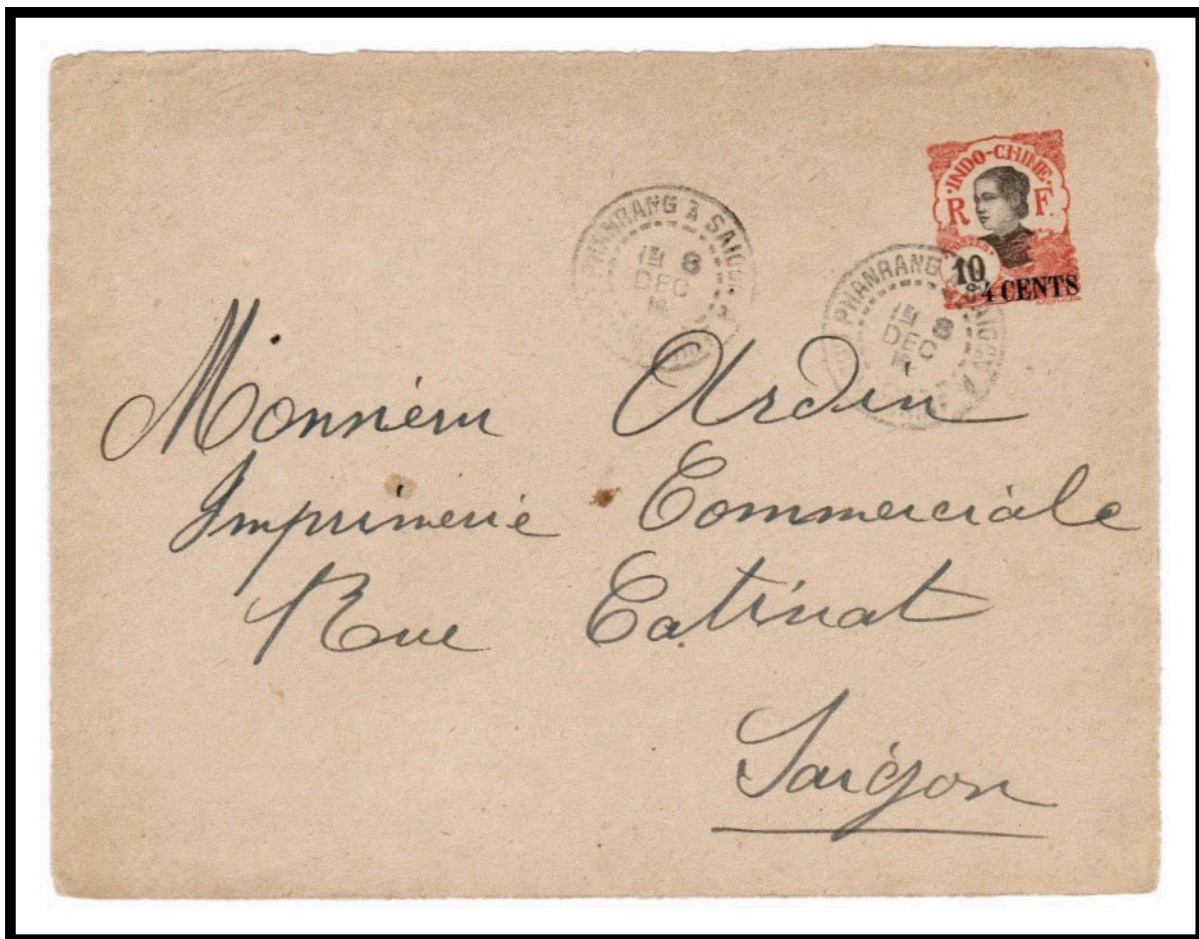 INDO-CHINE
R F
POSTES
10
4 CENTS
PHANRANG À SAIGON
8
DEC
PHANRANG À SAIGON
8
DEC
Monsieur Ardin
Imprimerie Commerciale
Rue Catinat
Saigon